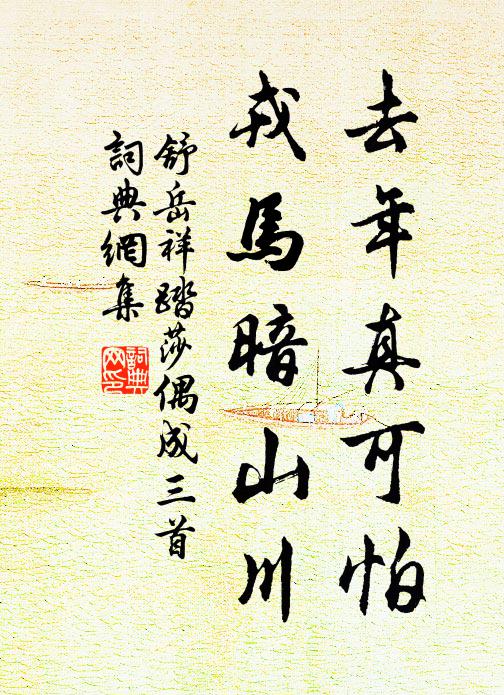 去年真可怕
戎馬暗山川
舒岳祥踏莎偶成三首
詞典網集
詞典网印